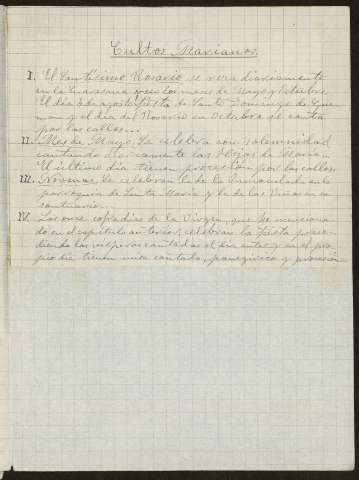 Cultos Marianos.
I. El Santísimo Rosario se reza diariamente
en la Cuaresma y en los meses de Mayo y Octubre.
El día 4 de agosto fiesta de Santo Domingo de Guz-
man y el día del Rosario en Octubre se canta
por las calles...
II. Mes de Mayo. Se celebra con solemnidad
cantando diariamente las Flores de María.
El último día tienen procesión por las calles.
III. Novenas. Se celebran la de la Inmaculada en la
parroquia de Santa María y la de las Viñas en su
santuario...
IV. Las once cofradías de la Virgen, que se menciona-
do en el capítulo anterior, celebran la fiesta prece-
diendo las vísperas cantadas el día antes y en el pro-
pio día tienen misa cantada, panegírico y procesión